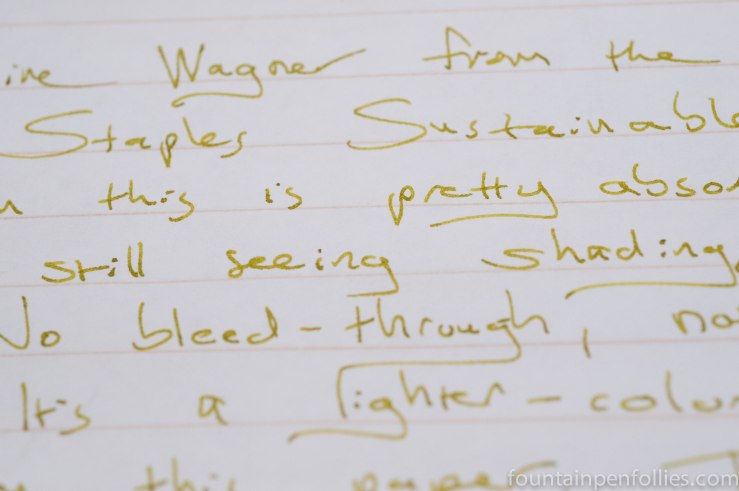 ine Wagner from the
Staples Sustainable
n this is pretty absor
still seeing shading,
No bleed-through, no
It's a lighter-color
this paper
fountainpenfollies.com